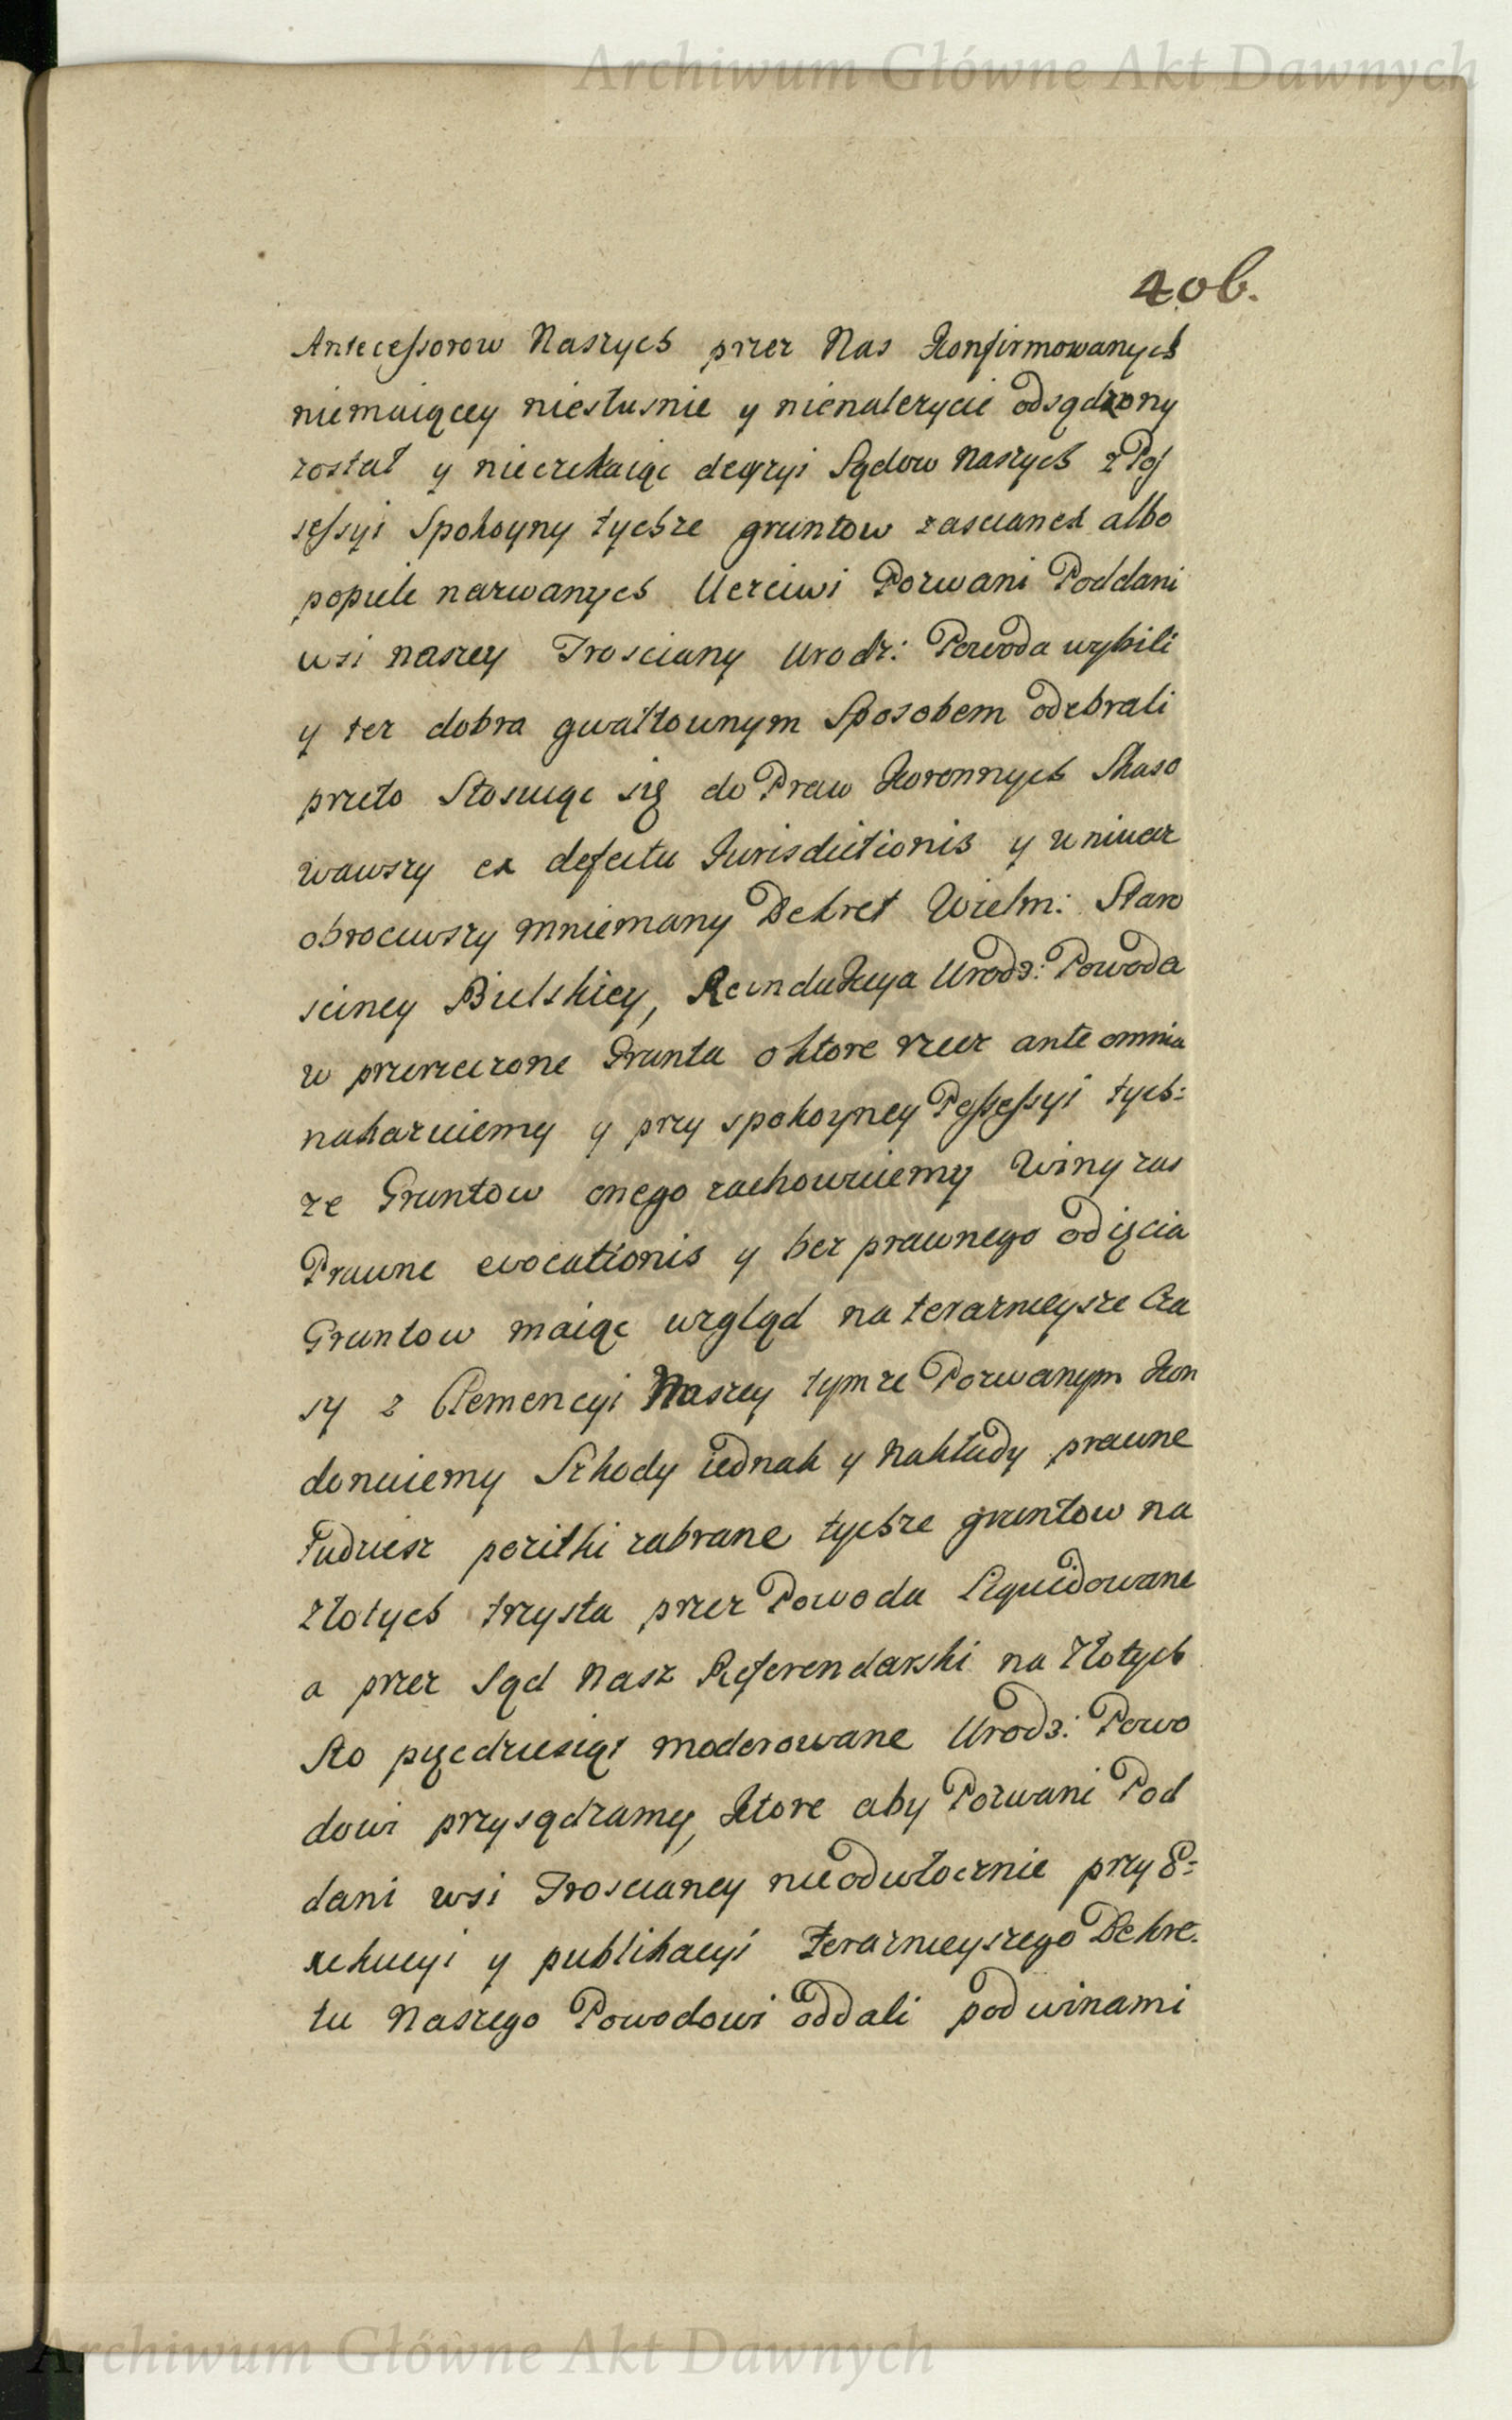 Archiwum Główne Akt Dawnych
406.
Antecessorow Naszych przez Nas Konfirmowanych
niemaiącey niesłusnie y nienalezycie odsądzony
został y nieczekaiąc decyzyi Sądow Naszych z Pos
sessyi Spokoyny tychze gruntow zascianek albo
popiele nazwanych Ucziwi Pozwani Poddani
wsi naszey Trosciany Urodz: Powoda wybili
y tez dobra gwałtownym Sposobem odebrali
przeto Stosuiąc się do Praw Koronnych Skaso
wawszy ex defectu Jurisdictionis y wniwecz
obrociwszy mniemany Dekret Wielm: Staro
sciney Bielskiey, Reindukcya Urodz: Powoda
w przerzeczone Grunta o ktore rzecz ante omnia
nakazuiemy y przy spokoyney Possessyi tych:
ze Gruntow onego zachowuiemy Winy zas
Prawne evocationis y bez prawnego odięcia
Gruntow maiąc wzgląd na terazneysze Cza
sy z Clemencyi Naszey tymze Pozwanym Kon
donuiemy Szkody iednak y Nakłady prawne
Tudziesz pozitki zabrane tychze gruntow na
Złotych trzysta przez Powoda Liquidowane
a przez Sąd Nasz Referendarski na Złotych
Sto pięcdziesiąt moderowane Urodz: Powo
dowi przysądzamy, Ktore aby Pozwani Pod
dani wsi Troscianey nieodwłocznie przy E=
xekucyi y publikacyi Terazneyszego Dekre.
tu Naszego Powodowi oddali pod winami
Archiwum Główne Akt Dawnych